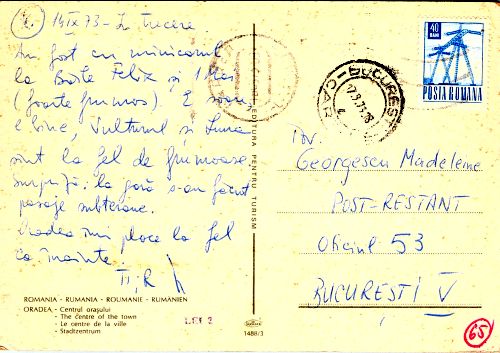 2. 15 IX 73 - In trecere
Am fost cu minicarul
la Băile Felix și 1 Mai
(foarte frumos). E soare,
e bine, Vulturul și Luna
sunt la fel de frumoase.
Surpriză: la gară s-au făcut
pasaje subterane.
Oradea îmi place la fel
ca înainte.
ROMANIA - RUMANIA - ROUMANIE - RUMÄNIEN
ORADEA - Centrul orașului
- The centre of the town
- Le centre de la ville
- Stadtzentrum
LEI 2
1488/3
EDITURA PENTRU TURISM
40 BANI
POSTA ROMANA
BUCURESTI
Georgescu Madeleine
POST-RESTANT
Oficiul 53
BUCUREȘTI V
65